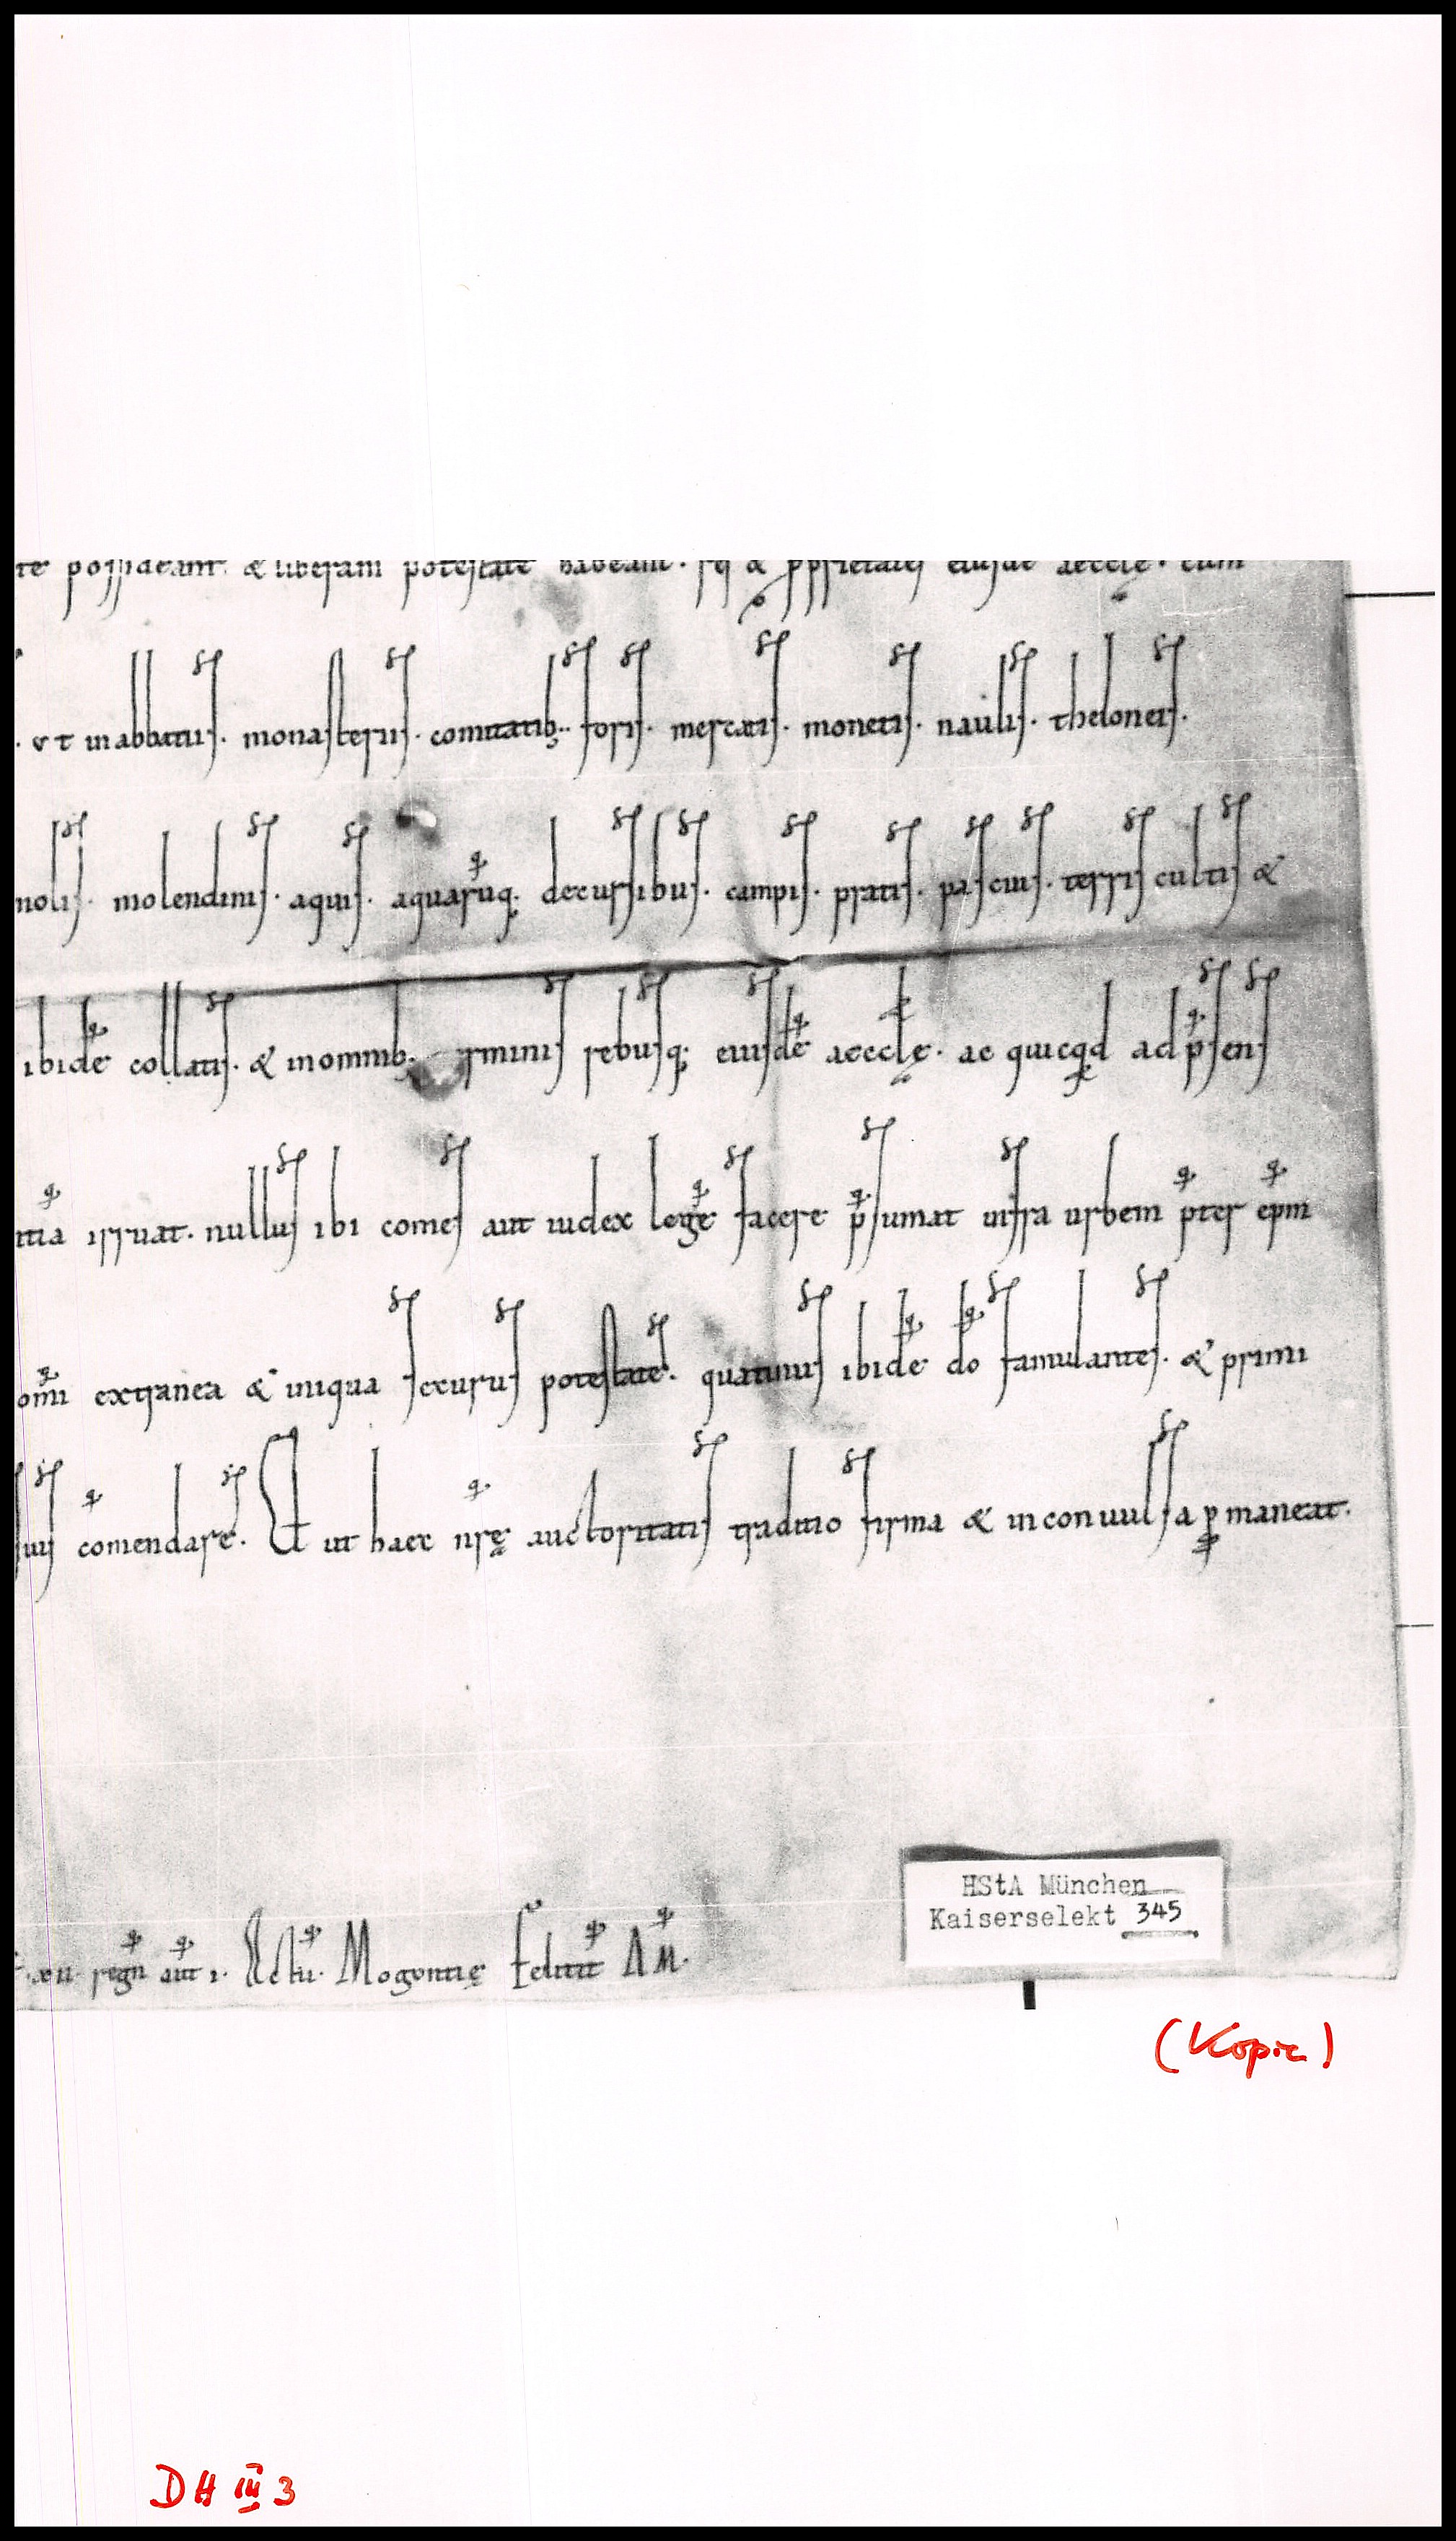 te possideant & liberam potestatē habeant. sꝫ & ꝓprietates eiusdē aecclę. cum
. ut in abbatiis. monasteriis. comitatib;. foris. mercatis. monetis. naulis. theloneis.
molendinis. aquis. aquarūq;. decursibus. campis. pratis. pascuis. terris cultis &
ibidē collatis. & in omnib; rminis rebusq; eiusdē aecclę. ac quicqd ad p̄sens
irruat. nullus ibi comes aut iudex legē facere p̄sumat infra urbem p̄ter ep̄m
om̄i extranea & iniqua securus potestatē. quatinus ibidē dō famulantes. & primi
com̄endare. Et ut haec nr̄ę auctoritatis traditio firma & inconuulsa ꝑmaneat.
xii. regn̄ aut̄ i. Actū. Mogontię felicit̄ AM̄.
HStA München
Kaiserselekt 345
(Kopie)
DH III 3